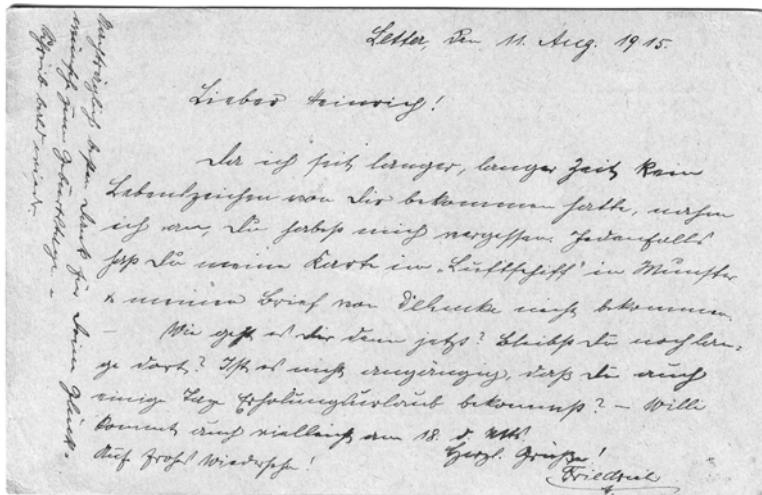 Letter, den 11. Aug. 1915.
Lieber Heinrich!
Da ich seit langer, langer Zeit kein
Lebenszeichen von Dir bekommen hatte, nahm
ich an, Du habest mich vergessen. Jedenfalls
hast Du meine Karte im „Luftschiff" in Münster
& meinen Brief von nicht bekommen.
– Wie geht es Dir denn jetzt? Bleibst Du noch lan-
ge dort? Ist es nicht angängig, daß Du auch
einige Tage Erholungsurlaub bekommst? – Willi
kommt auch vielleicht am 18. d. Mts.
Auf frohes Wiedersehn!
Herzl. Grüße!
Friedrich
Nachträglich besten Dank für Deine Glück-
wünsche zum Geburtstage. –
Schreib bald wieder.